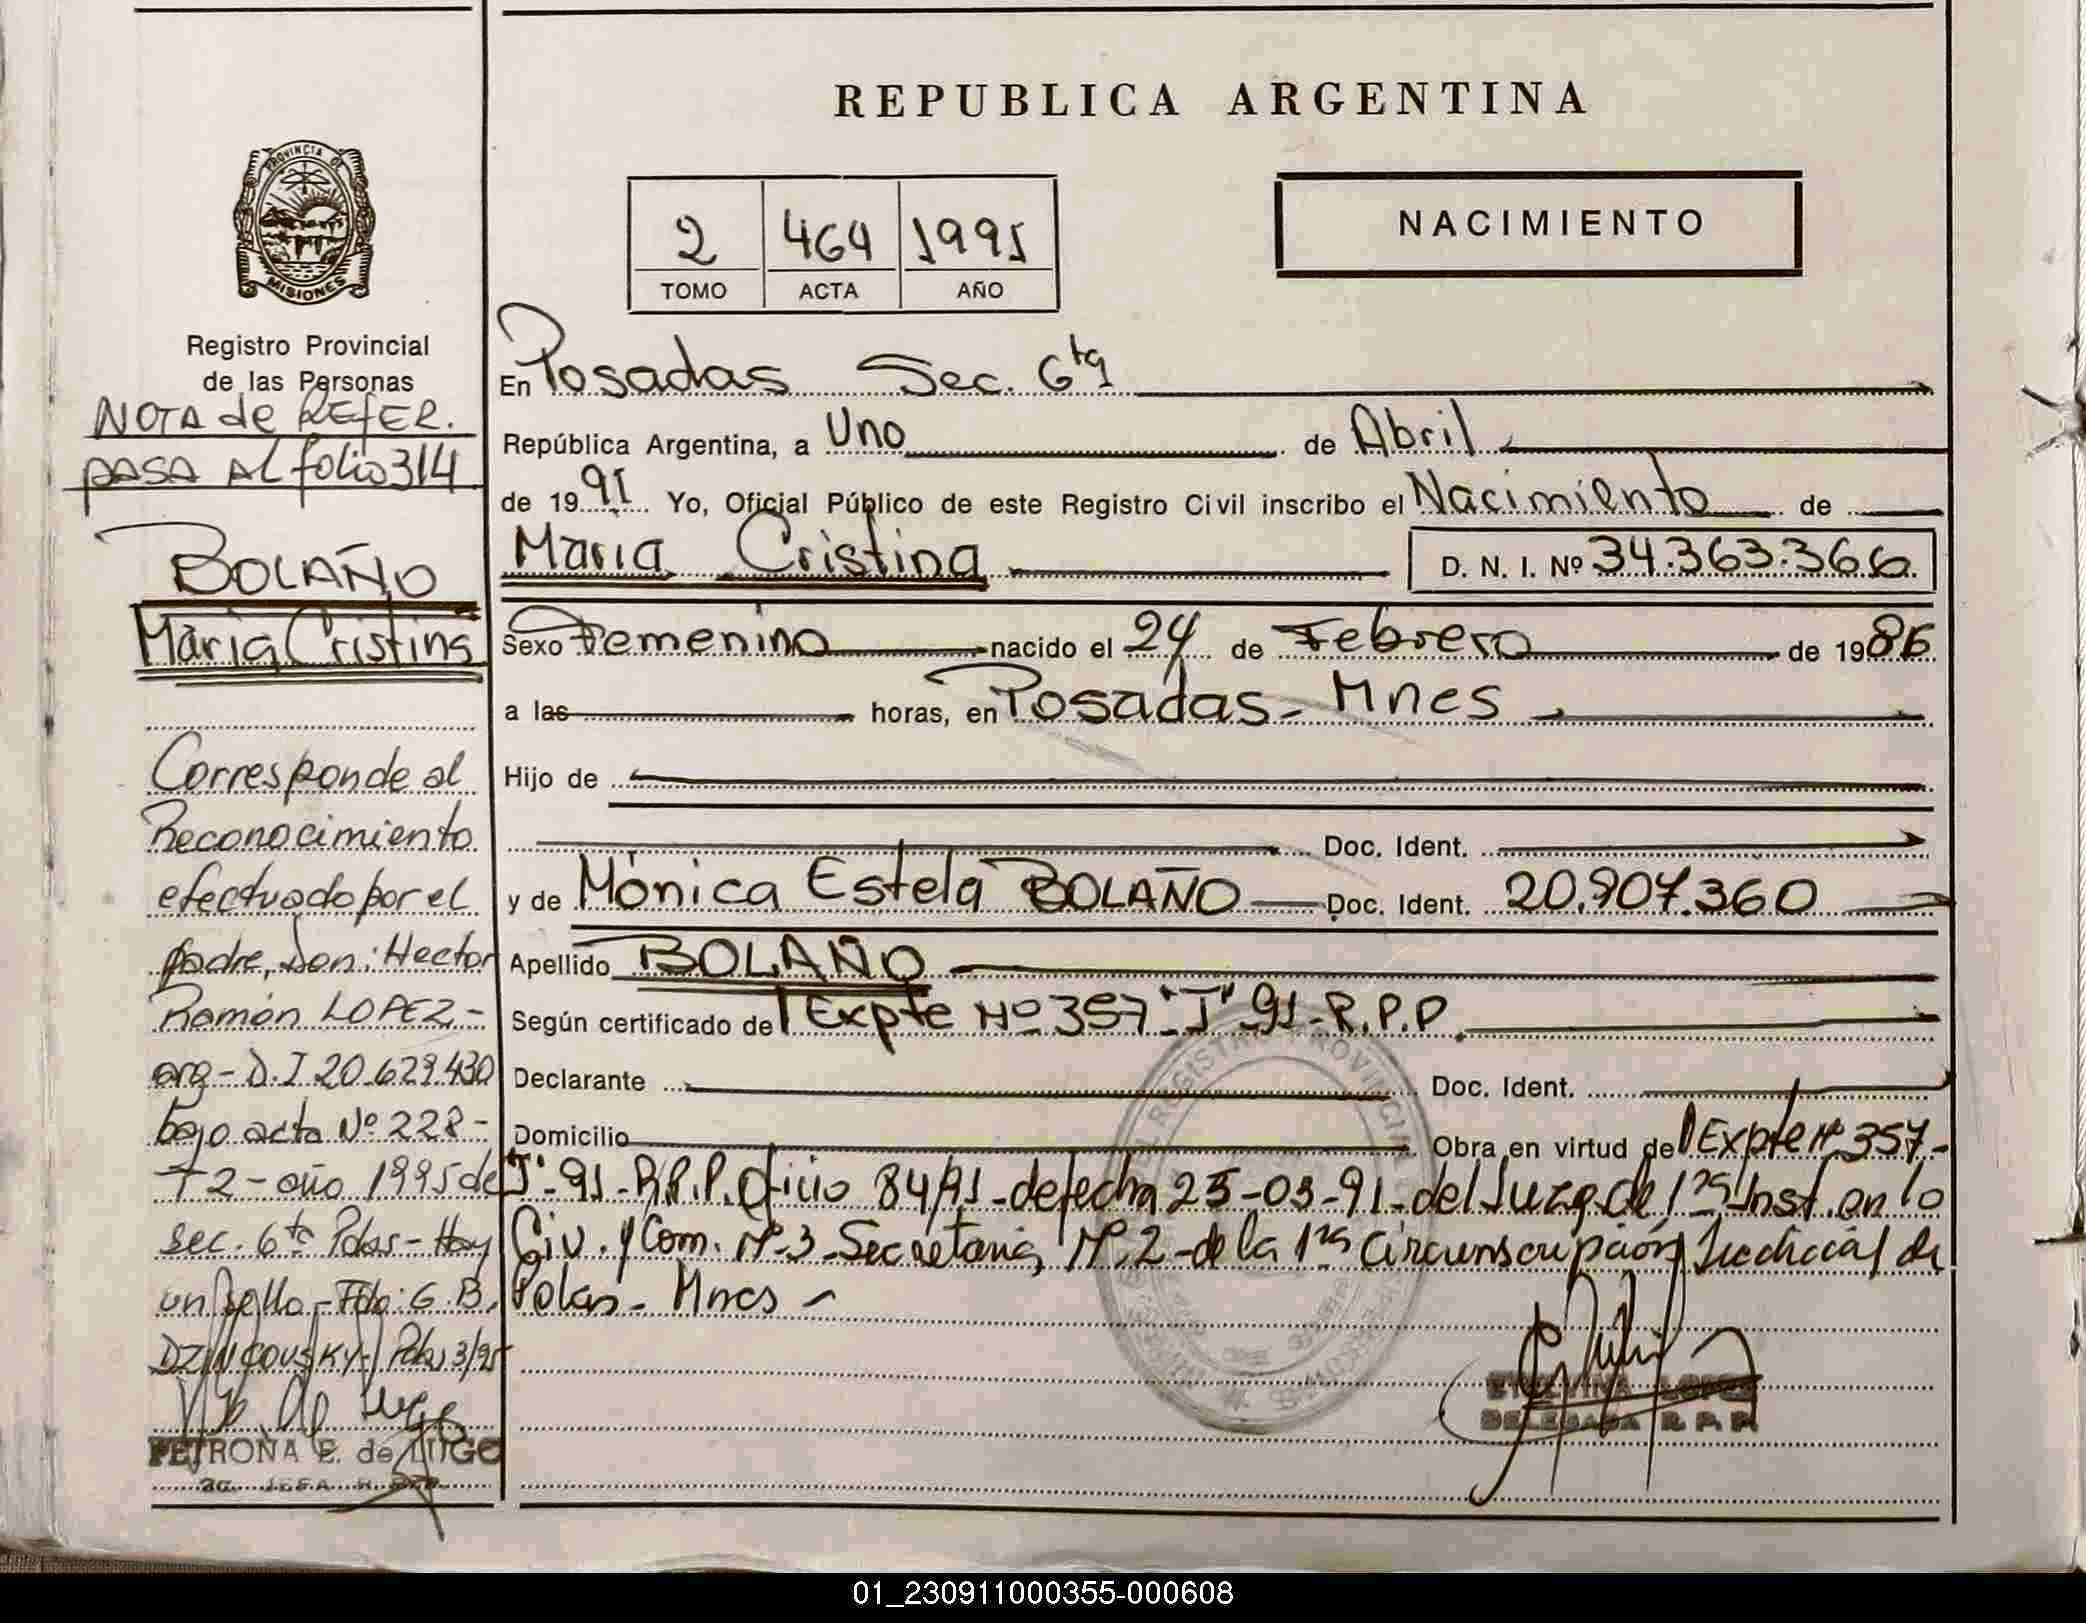 REPUBLICA ARGENTINA
PROVINCIA DE
MISIONES
2 464 1991
TOMO ACTA AÑO
NACIMIENTO
Registro Provincial
de las Personas
NOTA de REFER.
PASA AL folio 314
BOLAÑO
Maria Cristina
Corresponde al
Reconocimiento
efectuado por el
padre, Don: Hector
Ramón LOPEZ-
arg- D.I 20.629.430
bajo acta Nº 228-
T 2- año 1995 de
sec. 6ta Pdas- Hay
un sello- Fdo: G. B.
Pdas 3/95
PETRONA E. de LUGO
JEFA
En Posadas Sec. 6ta
República Argentina, a Uno de Abril
de 1991 Yo, Oficial Público de este Registro Civil inscribo el Nacimiento de
Maria Cristina D. N. I. Nº 34.363.366
Sexo Femenino nacido el 24 de Febrero de 1986
a las horas, en Posadas - Mnes
Hijo de
Doc. Ident.
y de Mónica Estela BOLAÑO Doc. Ident. 20.907.360
Apellido BOLAÑO
Según certificado de Expte Nº 357 "J" 91-R.P.P.
Declarante Doc. Ident.
Domicilio Obra en virtud de Expte Nº 357-
"J"-91-R.P.P. Oficio 84/91-de fecha 25-03-91-del Juzg. de 1ra Inst. en lo
Civ. y Com. Nº 3-Secretaria Nº 2-de la 1ra Circunscripción Judicial de
Pdas- Mnes-
ETELVINA LOPEZ
DELEGADA R. P. P.
01_230911000355-000608